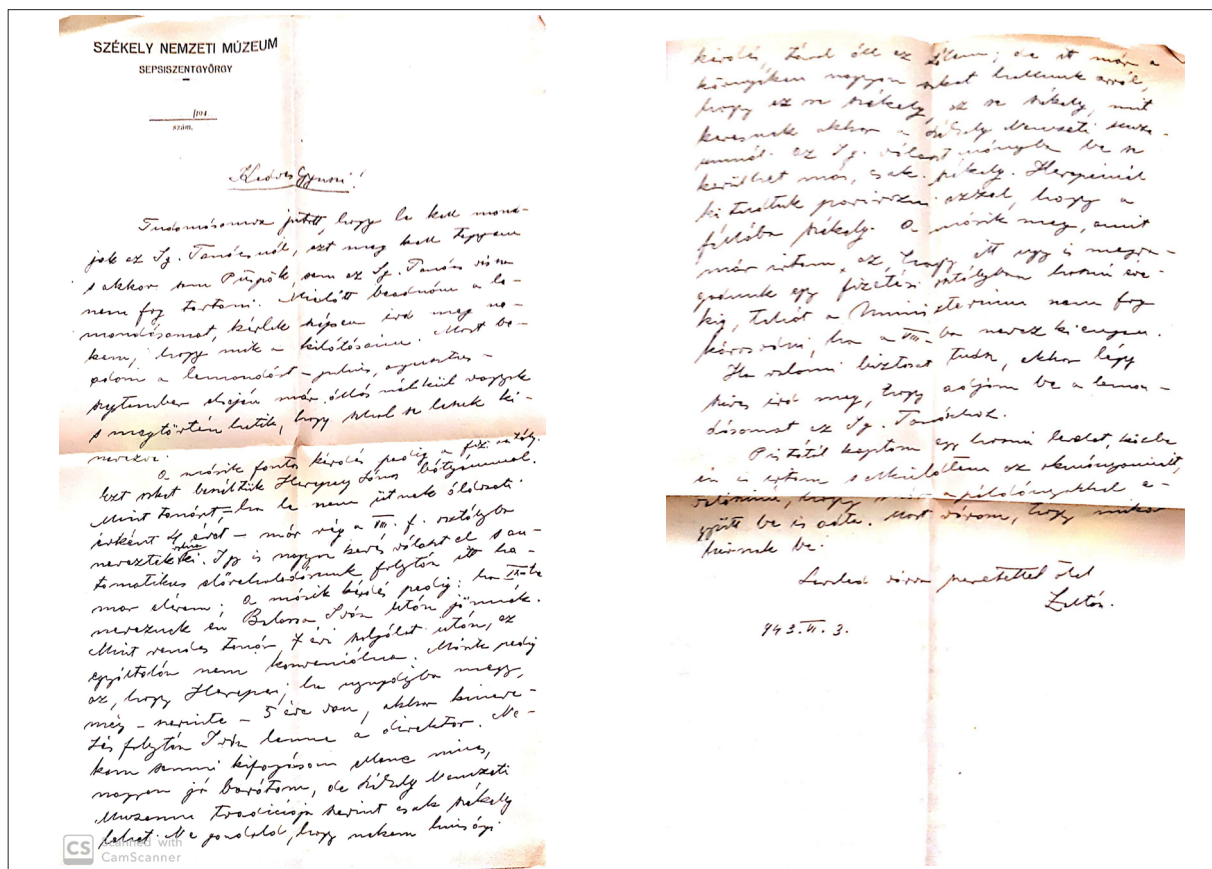 SZÉKELY NEMZETI MÚZEUM
SEPSISZENTGYÖRGY
/194
szám.
Kedves Gyuszi!
Tudomásomra jutott, hogy le kell mond-
jak az Ig. Tanácsnál, ezt meg kell tegyem
s akkor sem Püspök, sem az Ig. Tanács vissza
nem fog tartani. Mielőtt beadnám a le-
mondásomat, kérlek szépen írd meg ne-
kem, hogy mik a kilátásaim. Most be-
adom a lemondást – julius, agusztus –
szeptember elsején már állás nélkül vagyok
s megtörténhetik, hogy sehol se leszek ki-
nevezve.
A másik fontos kérdés pedig a fiz. osztály.
Ezt sokat beszéltük Herepey János bátyámmal.
Mint tanárt, ha le nem ütnek
érként 4 évet – már rég a VIII. f. osztályba
neveztek ki. Így is nagyon kevés választ el s au-
tomatikus előrehaladásunk folytán itt ha-
mar elérem; a másik kérdés pedig: ha
neveznek én Balassa Iván után jönnék.
Mint rendes tanár, 7 évi szolgálat után, az
egyáltalán nem konveniálna. Másik pedig
az, hogy Herepei, ha nyugdíjba megy,
még – szerinte – 5 éve van, akkor kineve-
zés folytán Iván lenne a direktor. Ne-
kem semmi kifogásom ellene nincs,
nagyon jó barátom, de Székely Nemzeti
Muzeum tradiciója szerint csak székely
lehet. Ne gondold, hogy nekem hiusági
kérdés, távol áll ez tőlem; de itt már a
környéken nagyon sokat hallunk arról,
hogy ez se székely, az se székely, mit
keresnek akkor a Székely Nemzeti Muze-
umnál. Az Ig. választmányba be se
kerülhet más, csak székely. Herepeinél
ki tudtuk azzal, hogy a
fél lába székely. A másik meg, amit
már írtam, az, hogy itt ugy is megra-
gadunk egy fizetési osztályban hosszú éve-
kig, tehát a Ministerium nem fog
károsodni, ha a VIII-ba nevez ki engem.
Ha valami biztosat tudsz, akkor légy
szíves írd meg, hogy adjam be a lemon-
dásomat az Ig. Tanácshoz.
Pistától kaptam egy hosszú levelet,
én is írtam s elküldöttem az okmányaimat,
hogy már a példányokkal e-
gyütt be is adta. Most várom, hogy mikor
hívnak be.
Leveled várva szeretettel ölel
Zoltán.
943. VI. 3.
CS Scanned with
CamScanner